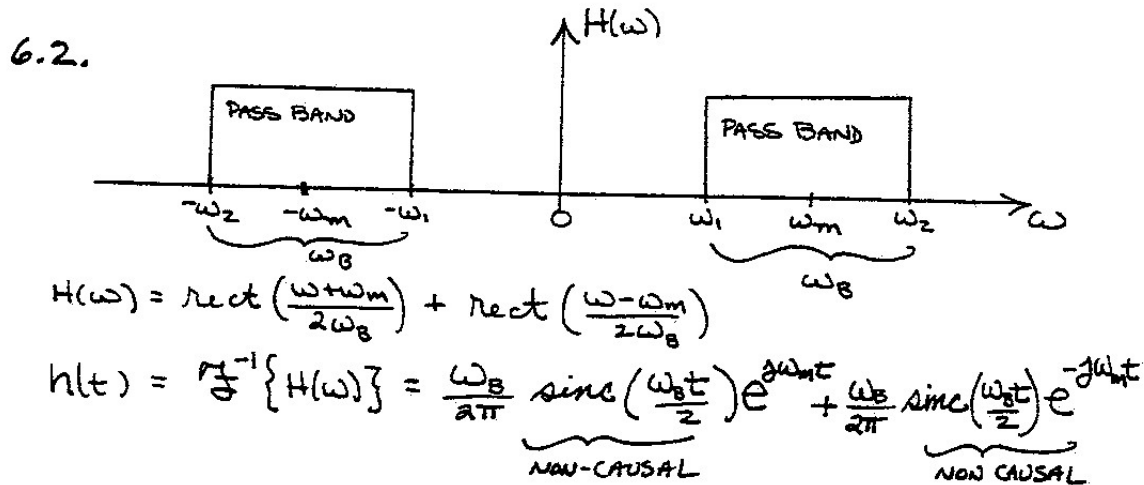 6.2.
H(ω)
PASS BAND
PASS BAND
-ω₂ -ωₘ -ω₁ 0 ω₁ ωₘ ω₂ ω
ω_B
ω_B
H(ω) = rect((ω+ωₘ)/(2ω_B)) + rect((ω-ωₘ)/(2ω_B))
h(t) = ℱ⁻¹{H(ω)} = ω_B/2π sinc(ω_B t/2) e^{jωₘt} + ω_B/2π sinc(ω_B t/2) e^{-jωₘt}
NON-CAUSAL NON CAUSAL